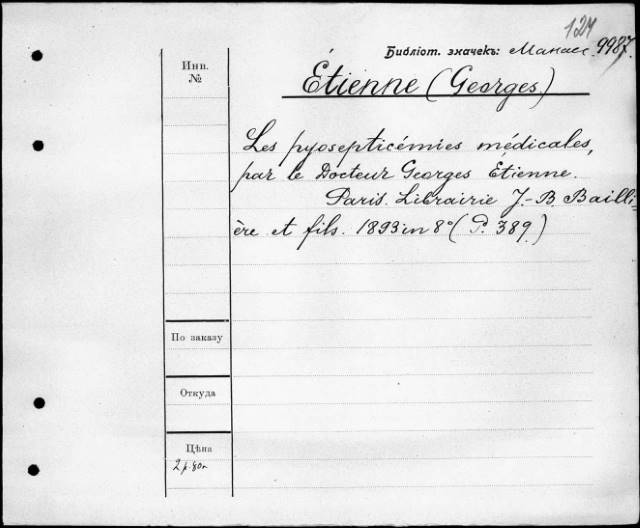 124
Библіот. значекъ: Манасс. 9987.
Инв.
№
Étienne (Georges.)
Les pyosepticémies médicales,
par le Docteur Georges Étienne.
Paris. Librairie J.-B. Bailli-
ère et fils. 1893 in 8° (P. 389.)
По заказу
Откуда
Цѣна
2 р. 80к